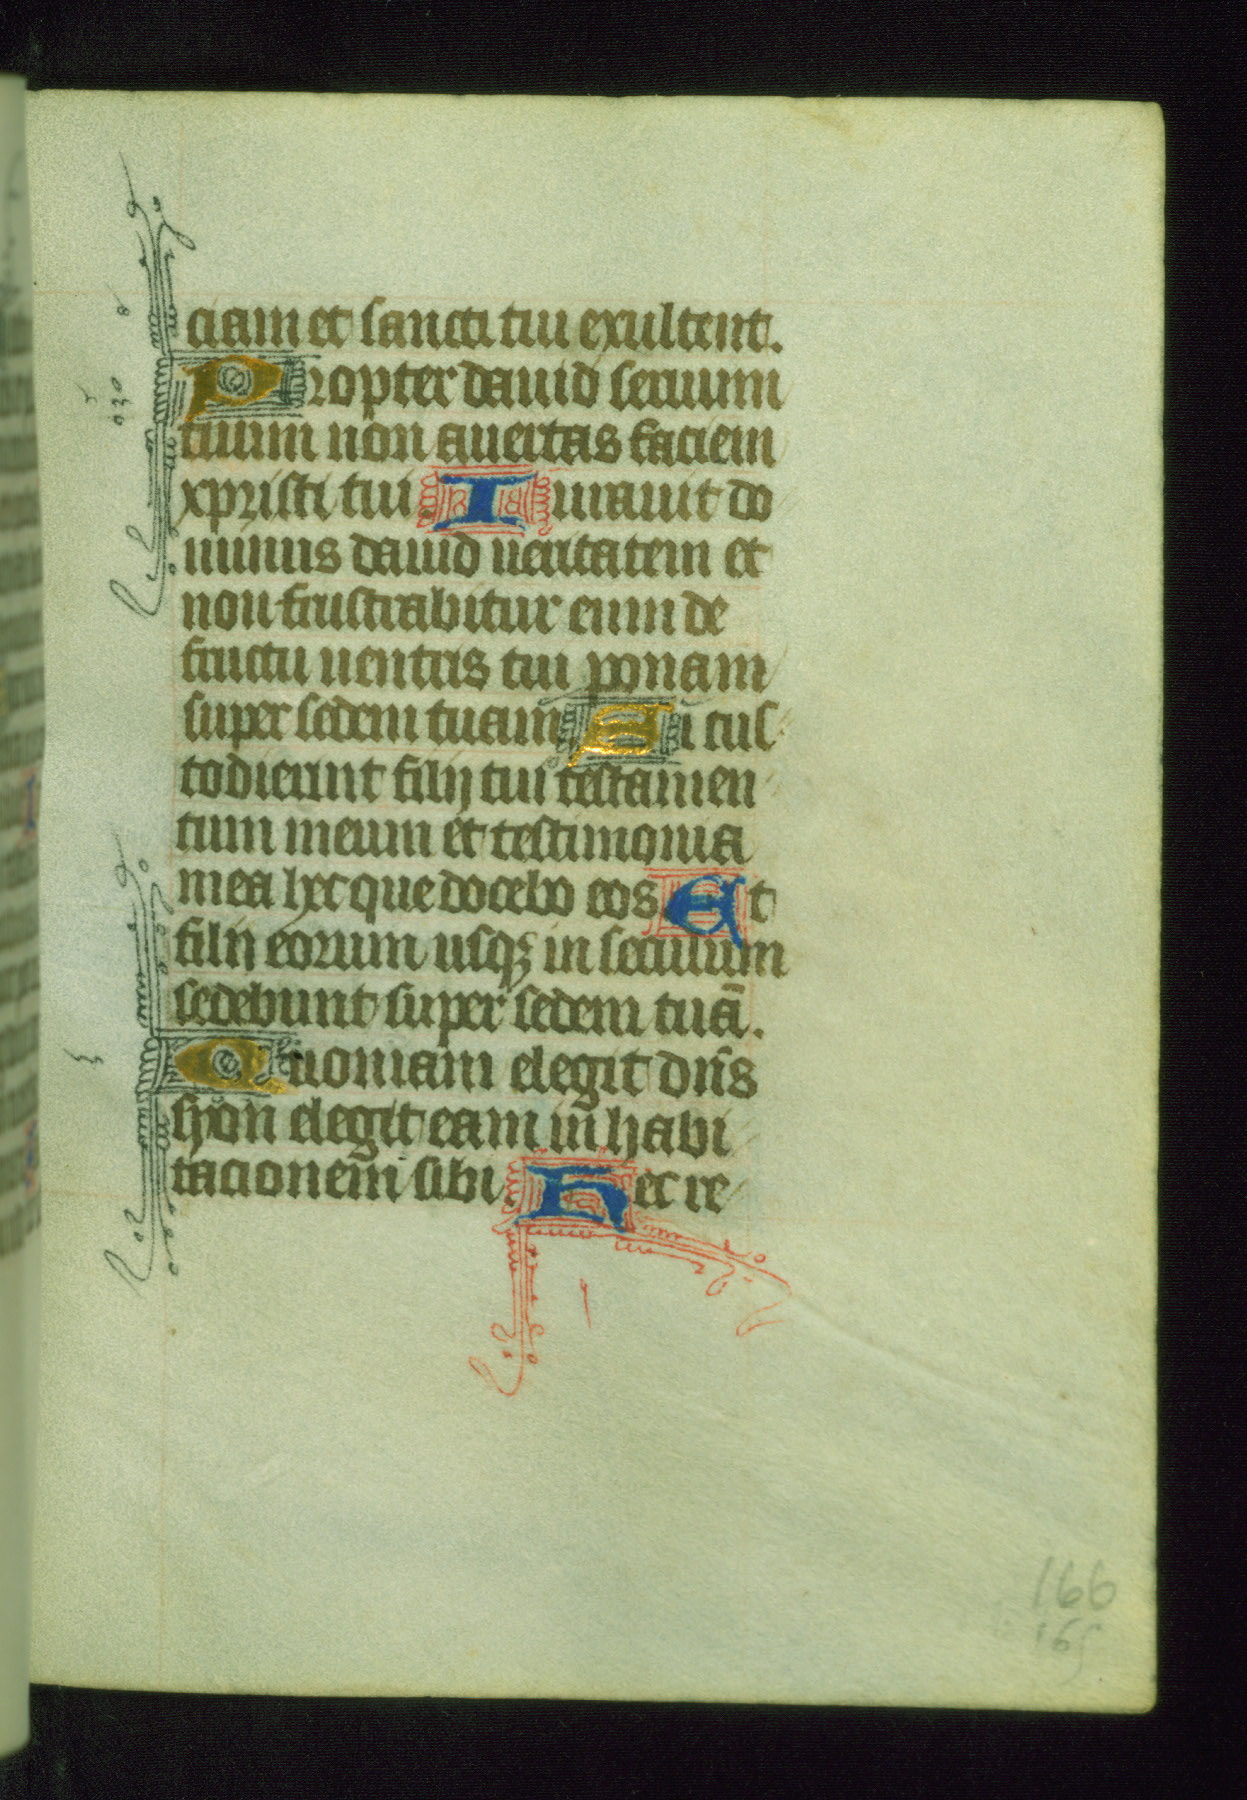 ciam et sancti tui exultent.
Propter dauid seruum
tuum non auertas faciem
xpristi tui Iurauit do
minus dauid ueritatem et
non frustrabitur eum de
fructu uentris tui ponam
super sedem tuam Si cus
todierint filij tui testamen
tum meum et testimonia
mea hec que docebo eos Et
filij eorum usqꝫ in seculum
sedebunt super sedem tuā.
Quoniam elegit dn̄s
syon elegit eam in habi
tacionem sibi. Hec re
166
165